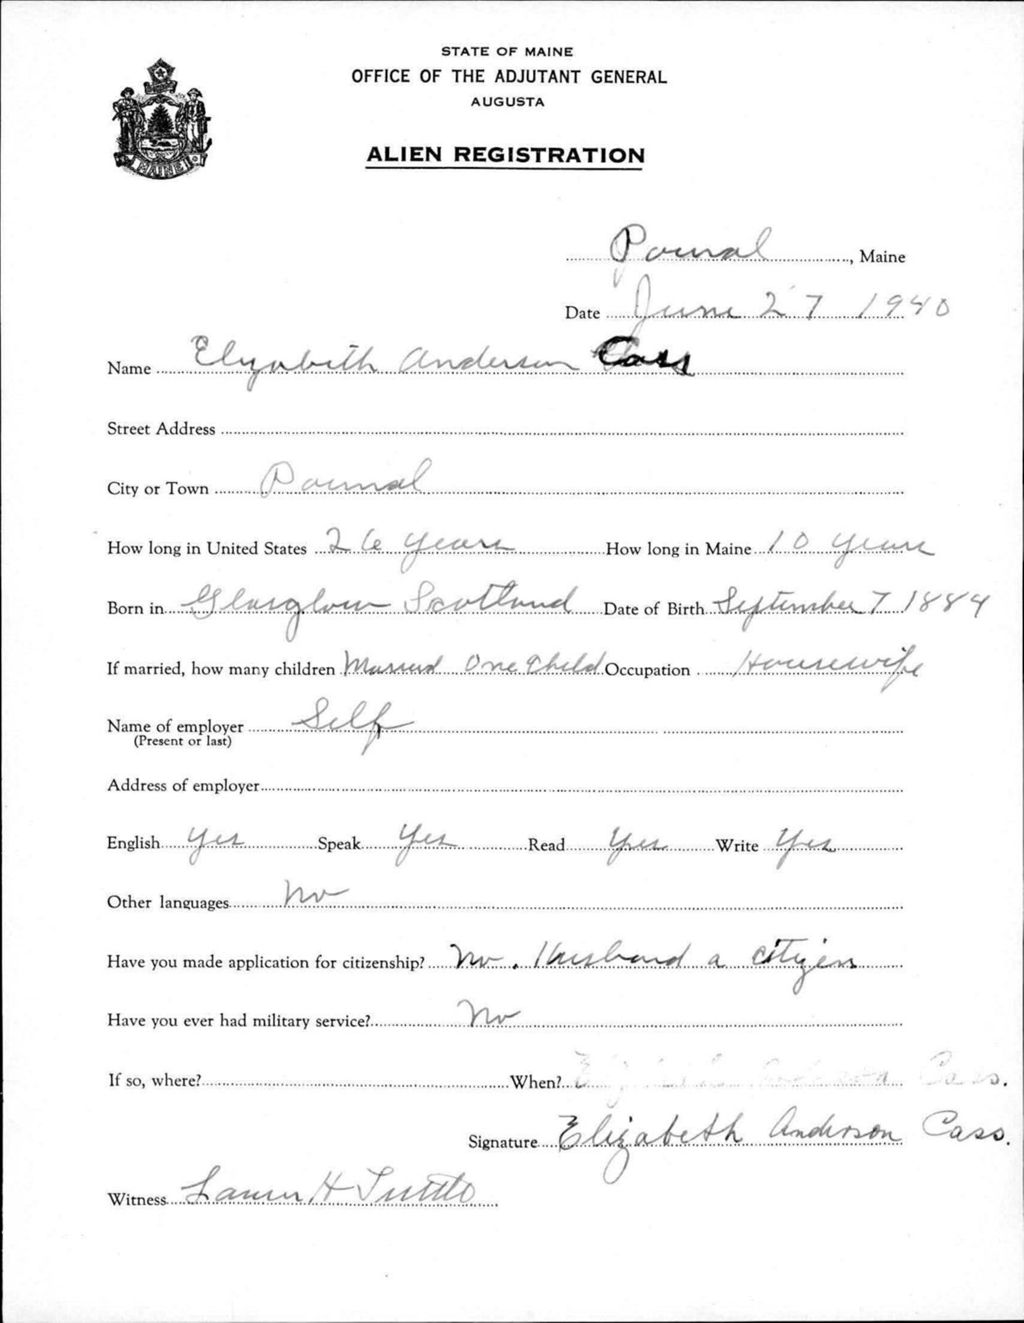 STATE OF MAINE
OFFICE OF THE ADJUTANT GENERAL
AUGUSTA
ALIEN REGISTRATION
MAINE
Pownal, Maine
Date June 27 1940
Name Elyzabeth Anderson Cass
Street Address
City or Town Pownal
How long in United States 26 years How long in Maine 10 years
Born in Glasglow Scotland Date of Birth September 7 1884
If married, how many children Married One Child Occupation Housewife
Name of employer Self
(Present or last)
Address of employer
English Yes Speak Yes Read Yes Write Yes
Other languages No
Have you made application for citizenship? No. Husband a citizen
Have you ever had military service? No
If so, where? When? Cass.
Signature Elizabeth Anderson Cass.
Witness H Tuttle